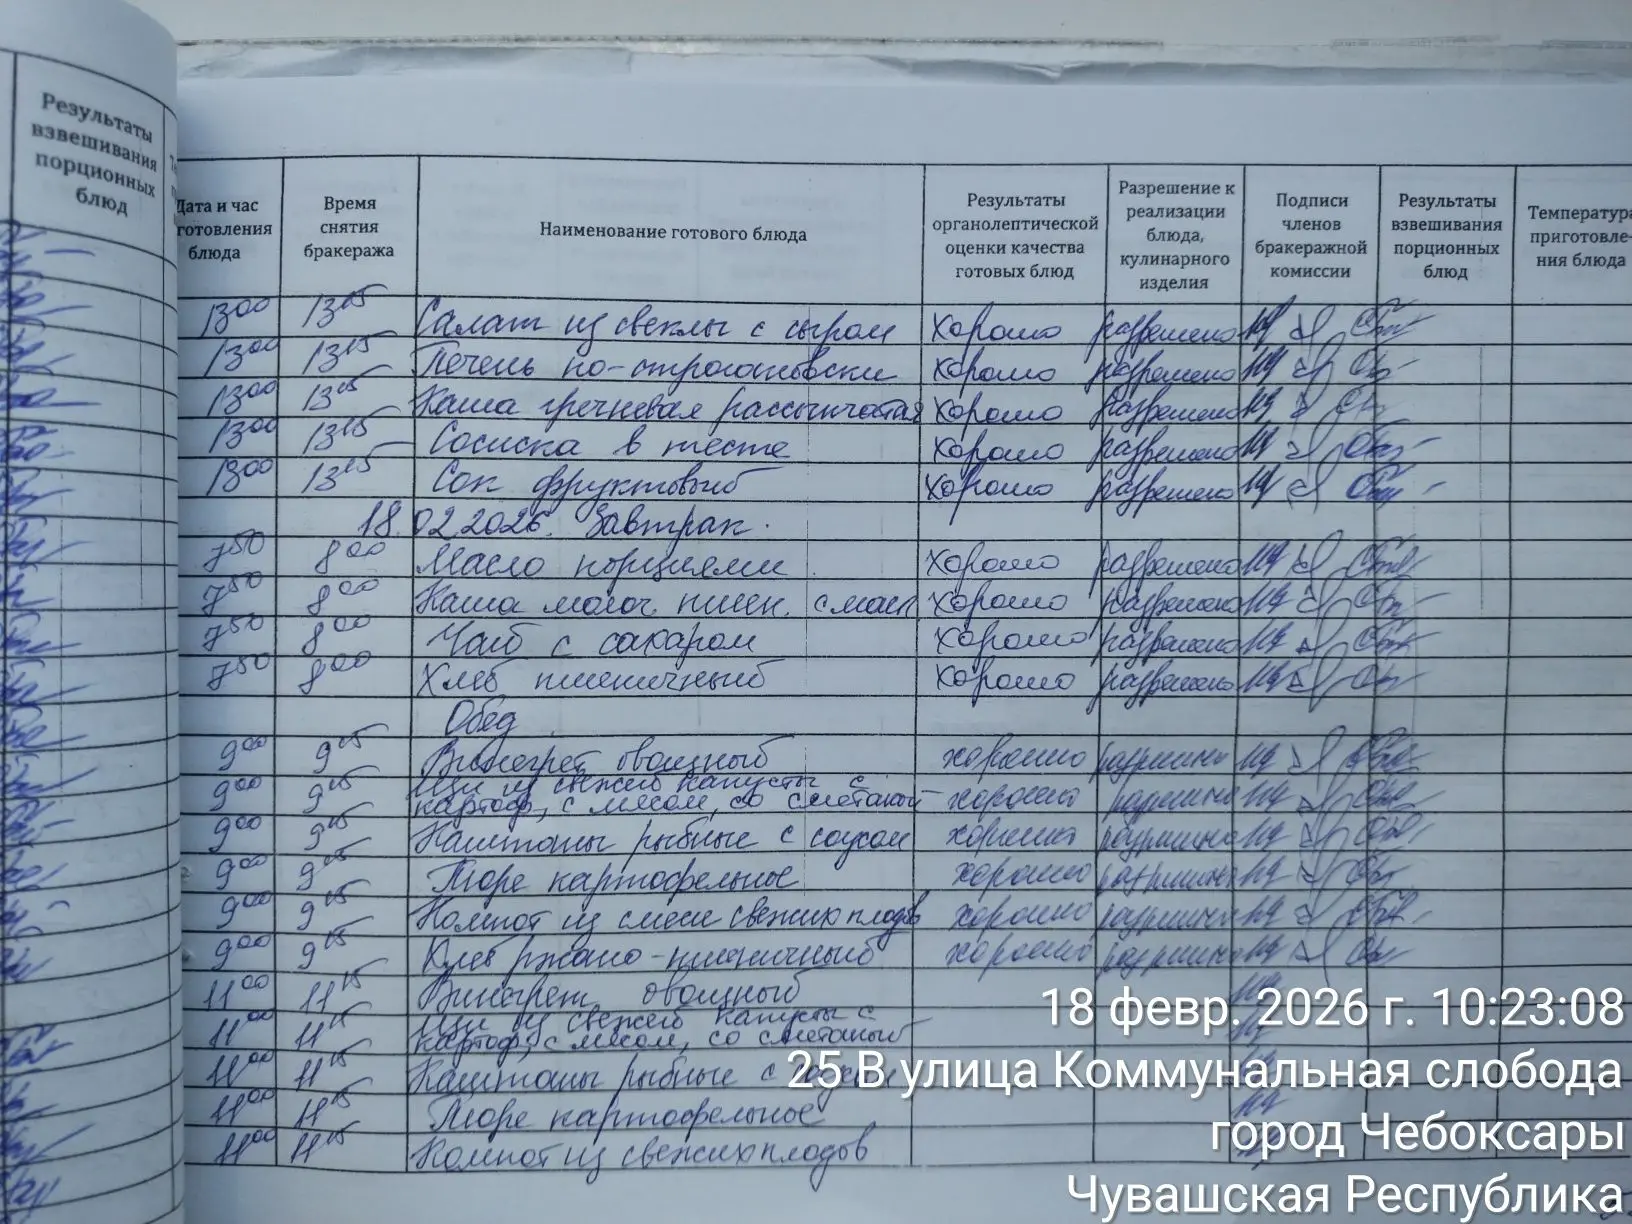 Результаты взвешивания порционных блюд
Дата и час готовления блюда | Время снятия бракеража | Наименование готового блюда | Результаты органолептической оценки качества готовых блюд | Разрешение к реализации блюда, кулинарного изделия | Подписи членов бракеражной комиссии | Результаты взвешивания порционных блюд | Температура приготовле-ния блюда
13 00 13 15 Салат из свеклы с сыром хорошо разрешено
13 00 13 15 Печень по-строгановски хорошо разрешено
13 00 13 15 Каша гречневая рассыпчатая хорошо разрешено
13 00 13 15 Сосиска в тесте хорошо разрешено
13 00 13 15 Сок фруктовый хорошо разрешено
18.02.2026. Завтрак.
7 50 8 00 Масло порциями хорошо разрешено
7 50 8 00 Каша молоч. пшен. с масл хорошо разрешено
7 50 8 00 Чай с сахаром хорошо разрешено
7 50 8 00 Хлеб пшеничный хорошо разрешено
Обед
9 00 9 15 Винегрет овощной хорошо разрешено
9 00 9 15 Щи из свежей капусты с картоф., с мясом, со сметаной хорошо разрешено
9 00 9 15 рыбные с соусом хорошо разрешено
9 00 9 15 Пюре картофельное хорошо разрешено
9 00 9 15 Компот из смеси свежих плодов хорошо разрешено
9 00 9 15 Хлеб ржано-пшеничный хорошо разрешено
11 00 11 15 Винегрет овощной
11 00 11 15 Щи из свежей капусты с картоф., с мясом, со сметаной
11 00 11 15 рыбные с
11 00 11 15 Пюре картофельное
11 00 11 15 Компот из свежих плодов
18 февр. 2026 г. 10:23:08
25 В улица Коммунальная слобода
город Чебоксары
Чувашская Республика